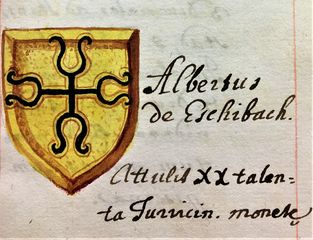 Albertus
de Eschibach.
Attulit XX talen-
ta Turicin. monetę